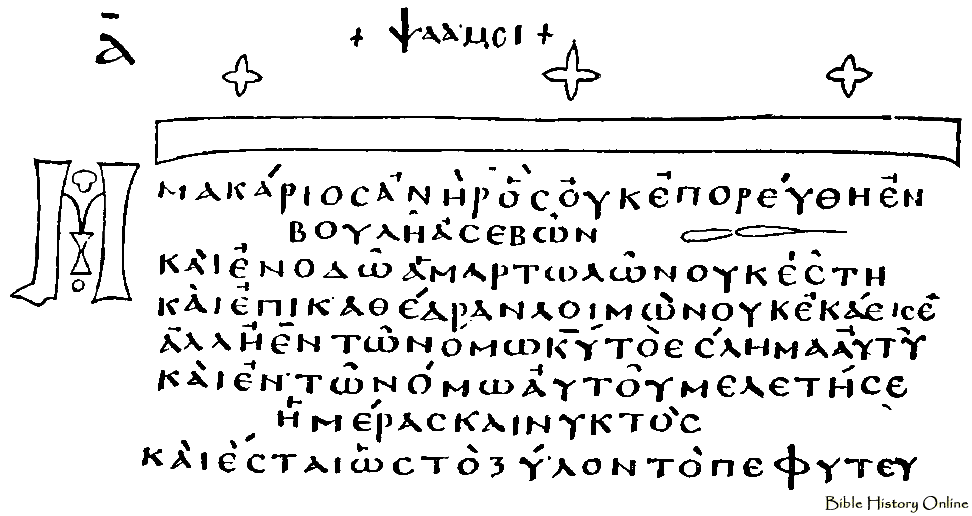 Ā
+ ΨΑΛΜϹΙ +
ΜΑΚΆΡΙΟϹἈΝῊΡὋϹΟὐΚἘΠΟΡΕΎΘΗἘΝ
ΒΟΥΛΗ͂ἈϹΕΒῶΝ
ΚΑῚἘΝΟΔῶἉΜΑΡΤΩΛῶΝΟΥΚἜϹΤΗ
ΚΑῚἘΠΙΚΑΘΈΔΡΑΝΛΟΙΜῶΝΟΥΚἘΚΆΕΙϹΕ
ἈΛΛΗἘΝΤῶΝΌΜΩΚ̅ΥΤῸΕϹΛΗΜΑἈΥΤΥ͂
ΚΑῚἘΝΤῶΝΌΜΩἈΥΤΟΥ͂ΜΕΛΕΤΉϹΕ
ἩΜΈΡΑϹΚΑΙΝΥΚΤῸϹ
ΚΑῚἜϹΤΑΙὡϹΤῸΞΎΛΟΝΤῸΠΕΦΥΤΕΥ
Bible History Online